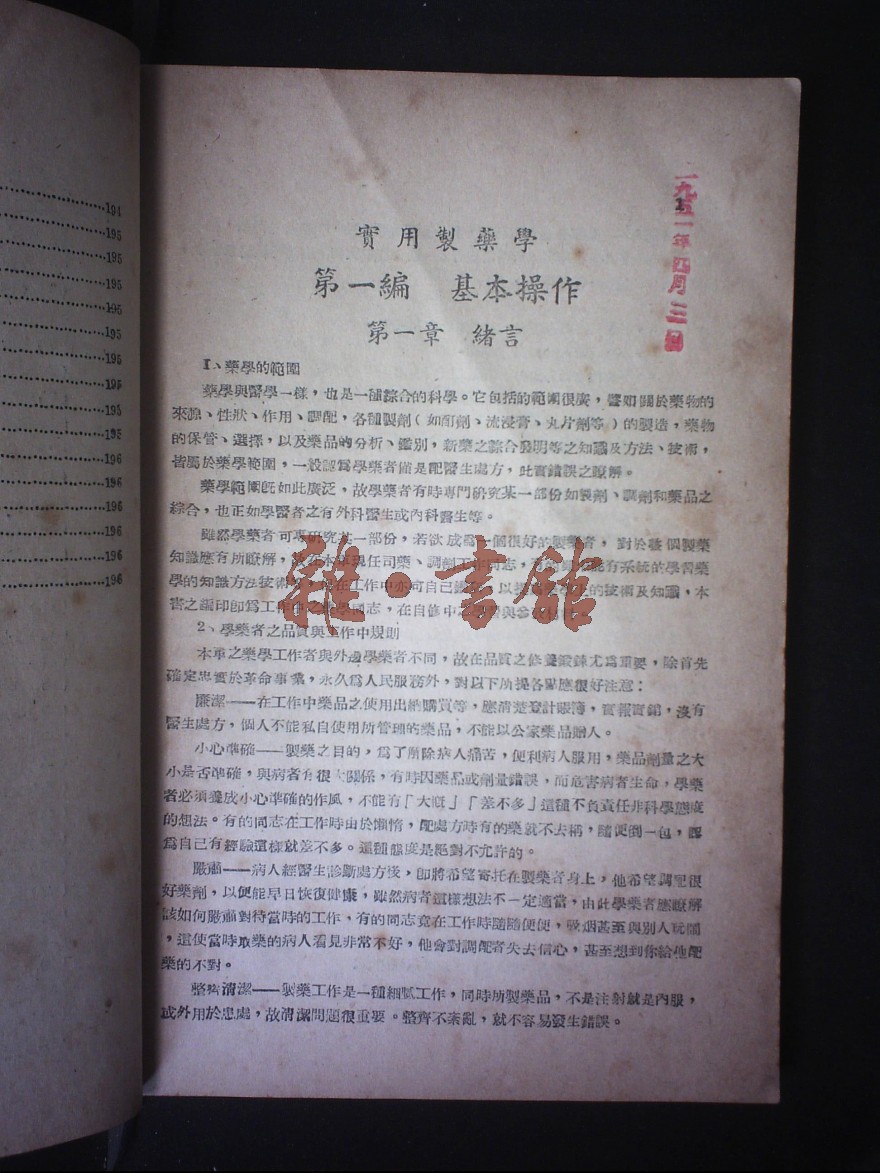 194
195
195
195
195
195
196
195
195
195
196
196
196
196
196
196
一九五一年四月三日
實用製藥學
第一編 基本操作
第一章 緒言
1、藥學的範圍
藥學與醫學一樣，也是一種綜合的科學。它包括的範圍很廣，譬如關於藥物的
來源、性狀、作用、調配，各種製劑（如酊劑、流浸膏、丸片劑等）的製造，藥物
的保管、選擇，以及藥品的分析、鑑別，新藥之綜合發明等之知識及方法、技術，
皆屬於藥學範圍，一般認爲學藥者僅是配醫生處方，此實錯誤之瞭解。
藥學範圍旣如此廣泛，故學藥者有時專門硏究某一部份如製劑、調劑和藥品之
綜合，也正如學醫者之有外科醫生或內科醫生等。
雖當學藥者可專硏究某一部份，若欲成爲一個很好的製藥者，對於整個製藥
知識應有所瞭解，現任司藥、調劑工作同志，有系統的學習藥
學的知識方法技術，在工作中亦可自己以的技術及知識，本
書之編印卽爲工作中之同志，在自修中之與參
2、學藥者之品質與工作中規則
本軍之藥學工作者與外邊學藥者不同，故在品質之修養鍛鍊尤爲重要，除首先
確定忠實於革命事業，永久爲人民服務外，對以下所提各點應很好注意：
廉潔——在工作中藥品之使用出納購買等，應淸楚登計賬簿，實報實銷，沒有
醫生處方，個人不能私自使用所管理的藥品，不能以公家藥品贈人。
小心準確——製藥之目的，爲了解除病人痛苦，便利病人服用，藥品劑量之大
小是否準確，與病者有很大關係，有時因藥品或劑量錯誤，而危害病者生命，學藥
者必須養成小心準確的作風，不能有「大槪」「差不多」這種不負責任非科學態度
的想法。有的同志在工作時由於懶惰，配處方時有的藥就不去稱，隨便倒一包，認
爲自己有經驗這樣就差不多。這種態度是絕對不允許的。
嚴肅——病人經醫生診斷處方後，卽將希望寄托在製藥者身上，他希望調配很
好藥劑，以便能早日恢復健康，雖然病者這樣想法不一定適當，由此學藥者應瞭解
該如何嚴肅對待當時的工作，有的同志竟在工作時隨隨便便，吸烟甚至與別人玩鬧
，這使當時取藥的病人看見非常不好，他會對調配者失去信心，甚至想到你給他配
藥的不對。
整齊淸潔——製藥工作是一種細膩工作，同時所製藥品，不是注射就是內服，
或外用於患處，故淸潔問題很重要。整齊不紊亂，就不容易發生錯誤。
雜·書館